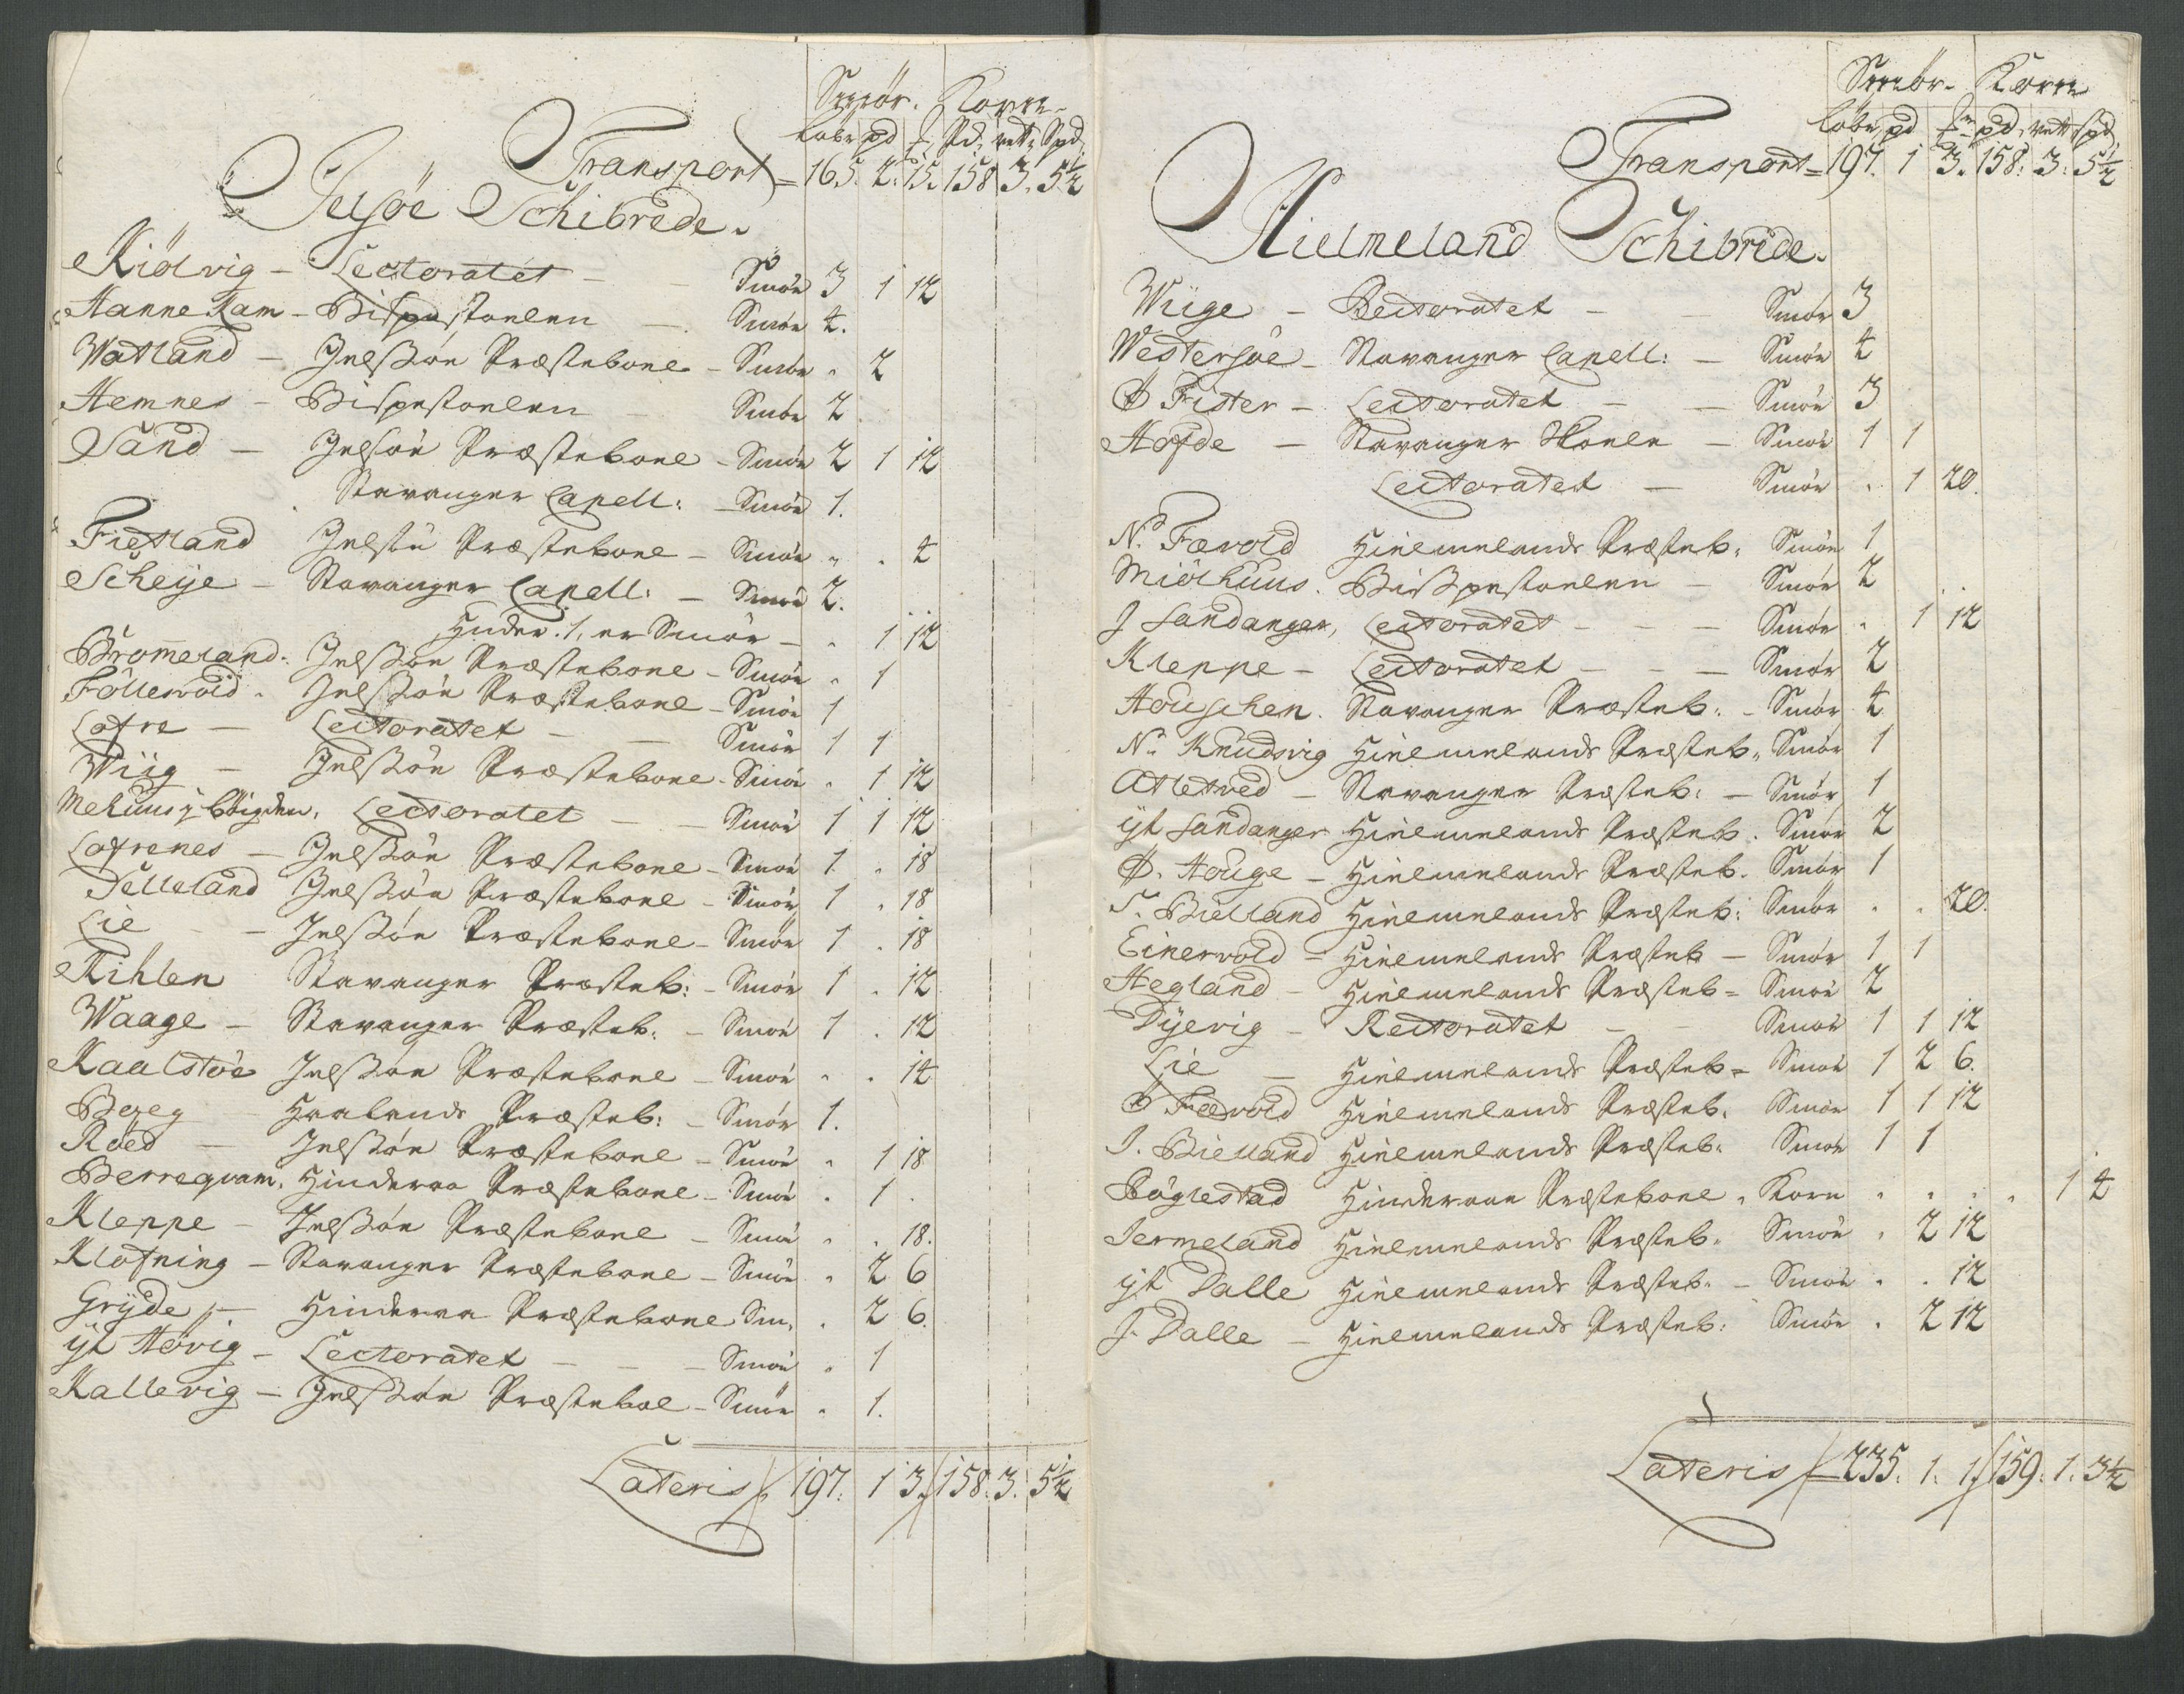 Smör. Korn
Løbr pd ℔ Pd, vett, Spd,
Transport = 165. 2. 15. 158 3. 5½
Jelsøe Schibrede.
Kiølvig – Lectoratet – Smör 3 1 12
Hanne Kam – Bispestoelen – Smör 4.
Watland – Jelssøe Præstebone – Smör " 2
Hemnes – Bispestoelen – Smör 2
Sand – Jelsøe Præstebone – Smör 2 1 12
Stavanger Capell: – Smör 1.
Fietland Jelsöe Præstebone – Smör " . 4
Scheye – Stavanger Capell: – Smör 2.
Huder .1, er Smör – " 1 12
Bromeland. Jelssøe Præstebone – Smör " 1
Föllevold. Jelssøe Præstebone – Smör 1
Lofre – Lectoratet – – Smör 1 1
Wiig – Jelssøe Præstebone – Smör " 1 12
Mehuus i böigden. Lectoratet – – Smör 1 1 12
Lofrenes – Jelssøe Præstebone – Smör 1 " 18
Selleland Jelssøe Præstebone – Smör 1 " 18
Lie – – Jelssøe Præstebone – Smör 1 . 18
Kihlen Stavanger Præsteb: – Smör 1 . 12
Waage – Stavanger Præsteb: – Smör 1 . 12
Kaalstöe Jelssøe Præstebone – Smör " . 14
Bereg Haalands Præsteb: – Smör 1.
Röed – Jelssøe Præstebone – Smör " 1 18
Berrequam. Hinderaa Præstebone – Smör . 1 .
Kleppe – Jelssøe Præstebone – Smör " . 18.
Klofning – Stavanger Præstebone – Smör " 2 6
Gryde – Hinderaa Præstebone Sm, . 2 6.
yt Høvig – Lectoratet – – – Smör " 1
Kallevig – Jelssøe Præstebol – Smör " 1.
Lateris 197. 1 3. 158. 3. 5½
Smör. Korn
Løbr pd ℔ pd, vett spd
Transport = 197. 1 3. 158: 3: 5½
Hielmeland Schibride.
Wiige – Rectoratet – – Smör 3
Westersöe – Stavanger Capell: – Smör 4
Ø Fister – Lectoratet – – Smör 3
Hofde – Stavanger Skoele – Smör 1 1
Lectoratet – Smör " 1 20.
N. Fævold Hielmelands Præsteb. Smör 1
Miölhuus. Bisspestoelen – Smör 2
J Landanger, Lectoratet – – – Smör " 1 12
Kleppe – Lectoratet – – – Smör 2
Houschen. Stavanger Præsteb: – Smör 4
N. Knudsvig Hielmelands Præsteb. Smör 1
Atletved – Stavanger Præsteb: – Smör 1
yt Landanger Hielmelands Præsteb. Smör 2
Ø. Houge – Hielmelands Præsteb. Smör 1
S. Bielland Hielmelands Præsteb: Smör . . 20.
Einervold – Hielmelands Præsteb – Smör 1 1
Hegland – Hielmelands Præsteb = Smör 2
Dyevig – Rectoratet – – Smör 1 1 12
Lie – Hielmelands Præsteb = Smör 1 2 6.
Ø Fævold Hielmelands Præsteb. Smör 1 1 12
J. Bielland Hielmelands Præsteb: Smör 1 1
Böglestad Hinderaae Præstebone, Korn " " . " 1 4
Jermeland Hielmelands Præsteb. Smör " 2 12
yt Dalle Hielmelands Præsteb. – Smör " . 12
J. Dalle – Hielmelands Præsteb: Smör . 2 12
Lateris 235. 1. 1 159. 1. 3½